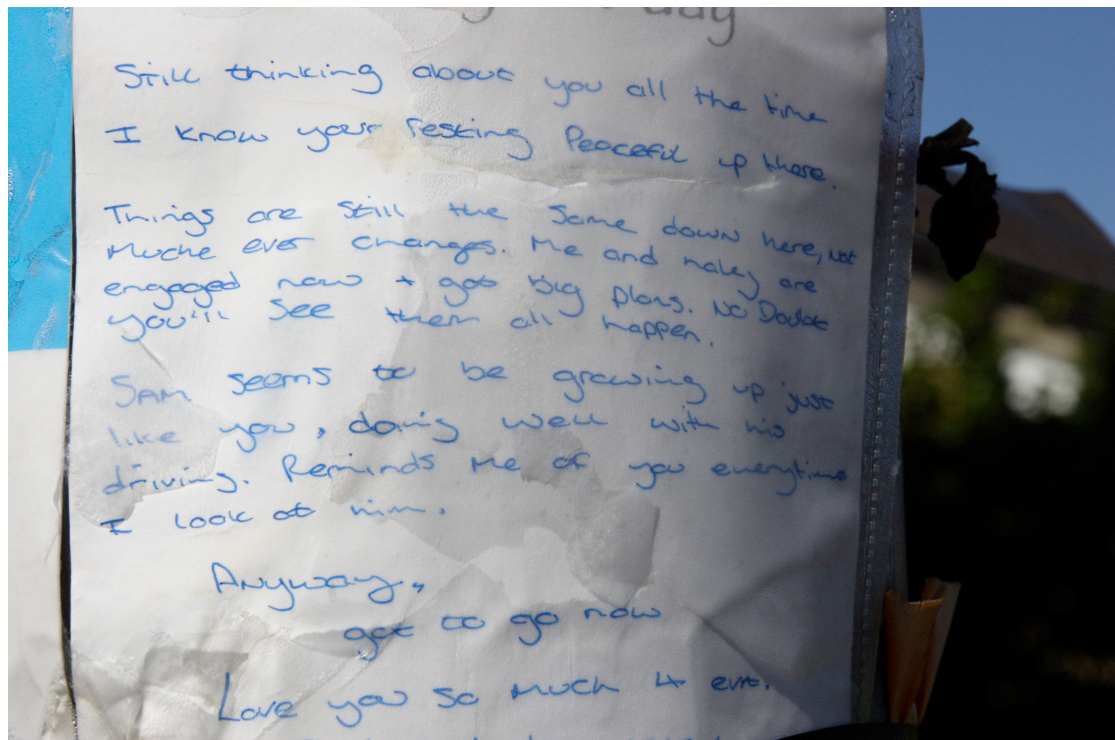 day
Still thinking about you all the time
I know your resting Peaceful up there.
Things are still the same down here, not
Muche ever changes. Me and are
engaged now + got big plans. No Doubt
you'll see them all happen.
Sam seems to be growing up just
like you, doing well with his
driving. Reminds me of you everytime
I look at him.
Anyway,
got to go now
Love you so much 4 eva.